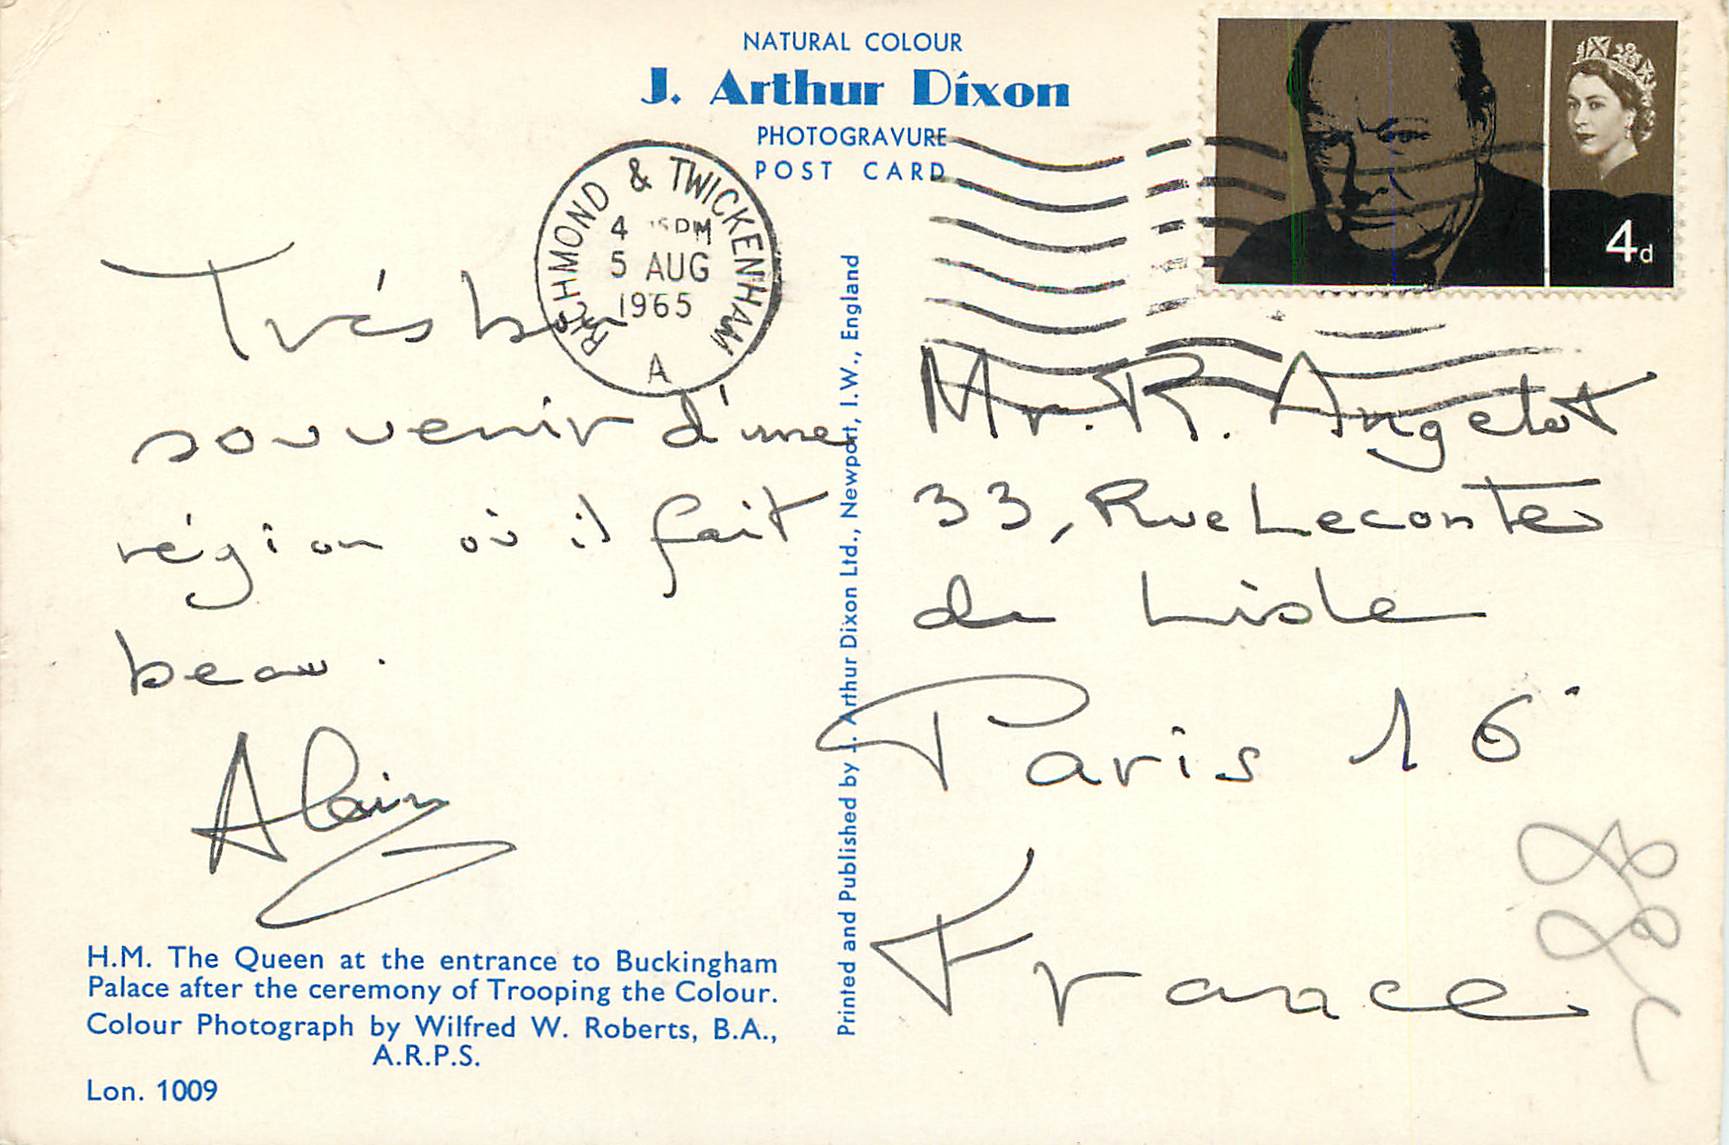 NATURAL COLOUR
J. Arthur Dixon
PHOTOGRAVURE
POST CARD
RICHMOND & TWICKENHAM
4 15 PM
5 AUG
1965
A
4d
Très bon
souvenir d'une
région où il fait
beau.
Alain
H.M. The Queen at the entrance to Buckingham
Palace after the ceremony of Trooping the Colour.
Colour Photograph by Wilfred W. Roberts, B.A.,
A.R.P.S.
Lon. 1009
Printed and Published by J. Arthur Dixon Ltd., Newport, I.W., England
Mr. R. Angelot
33, Rue Leconte
de Lisle
Paris 16
France